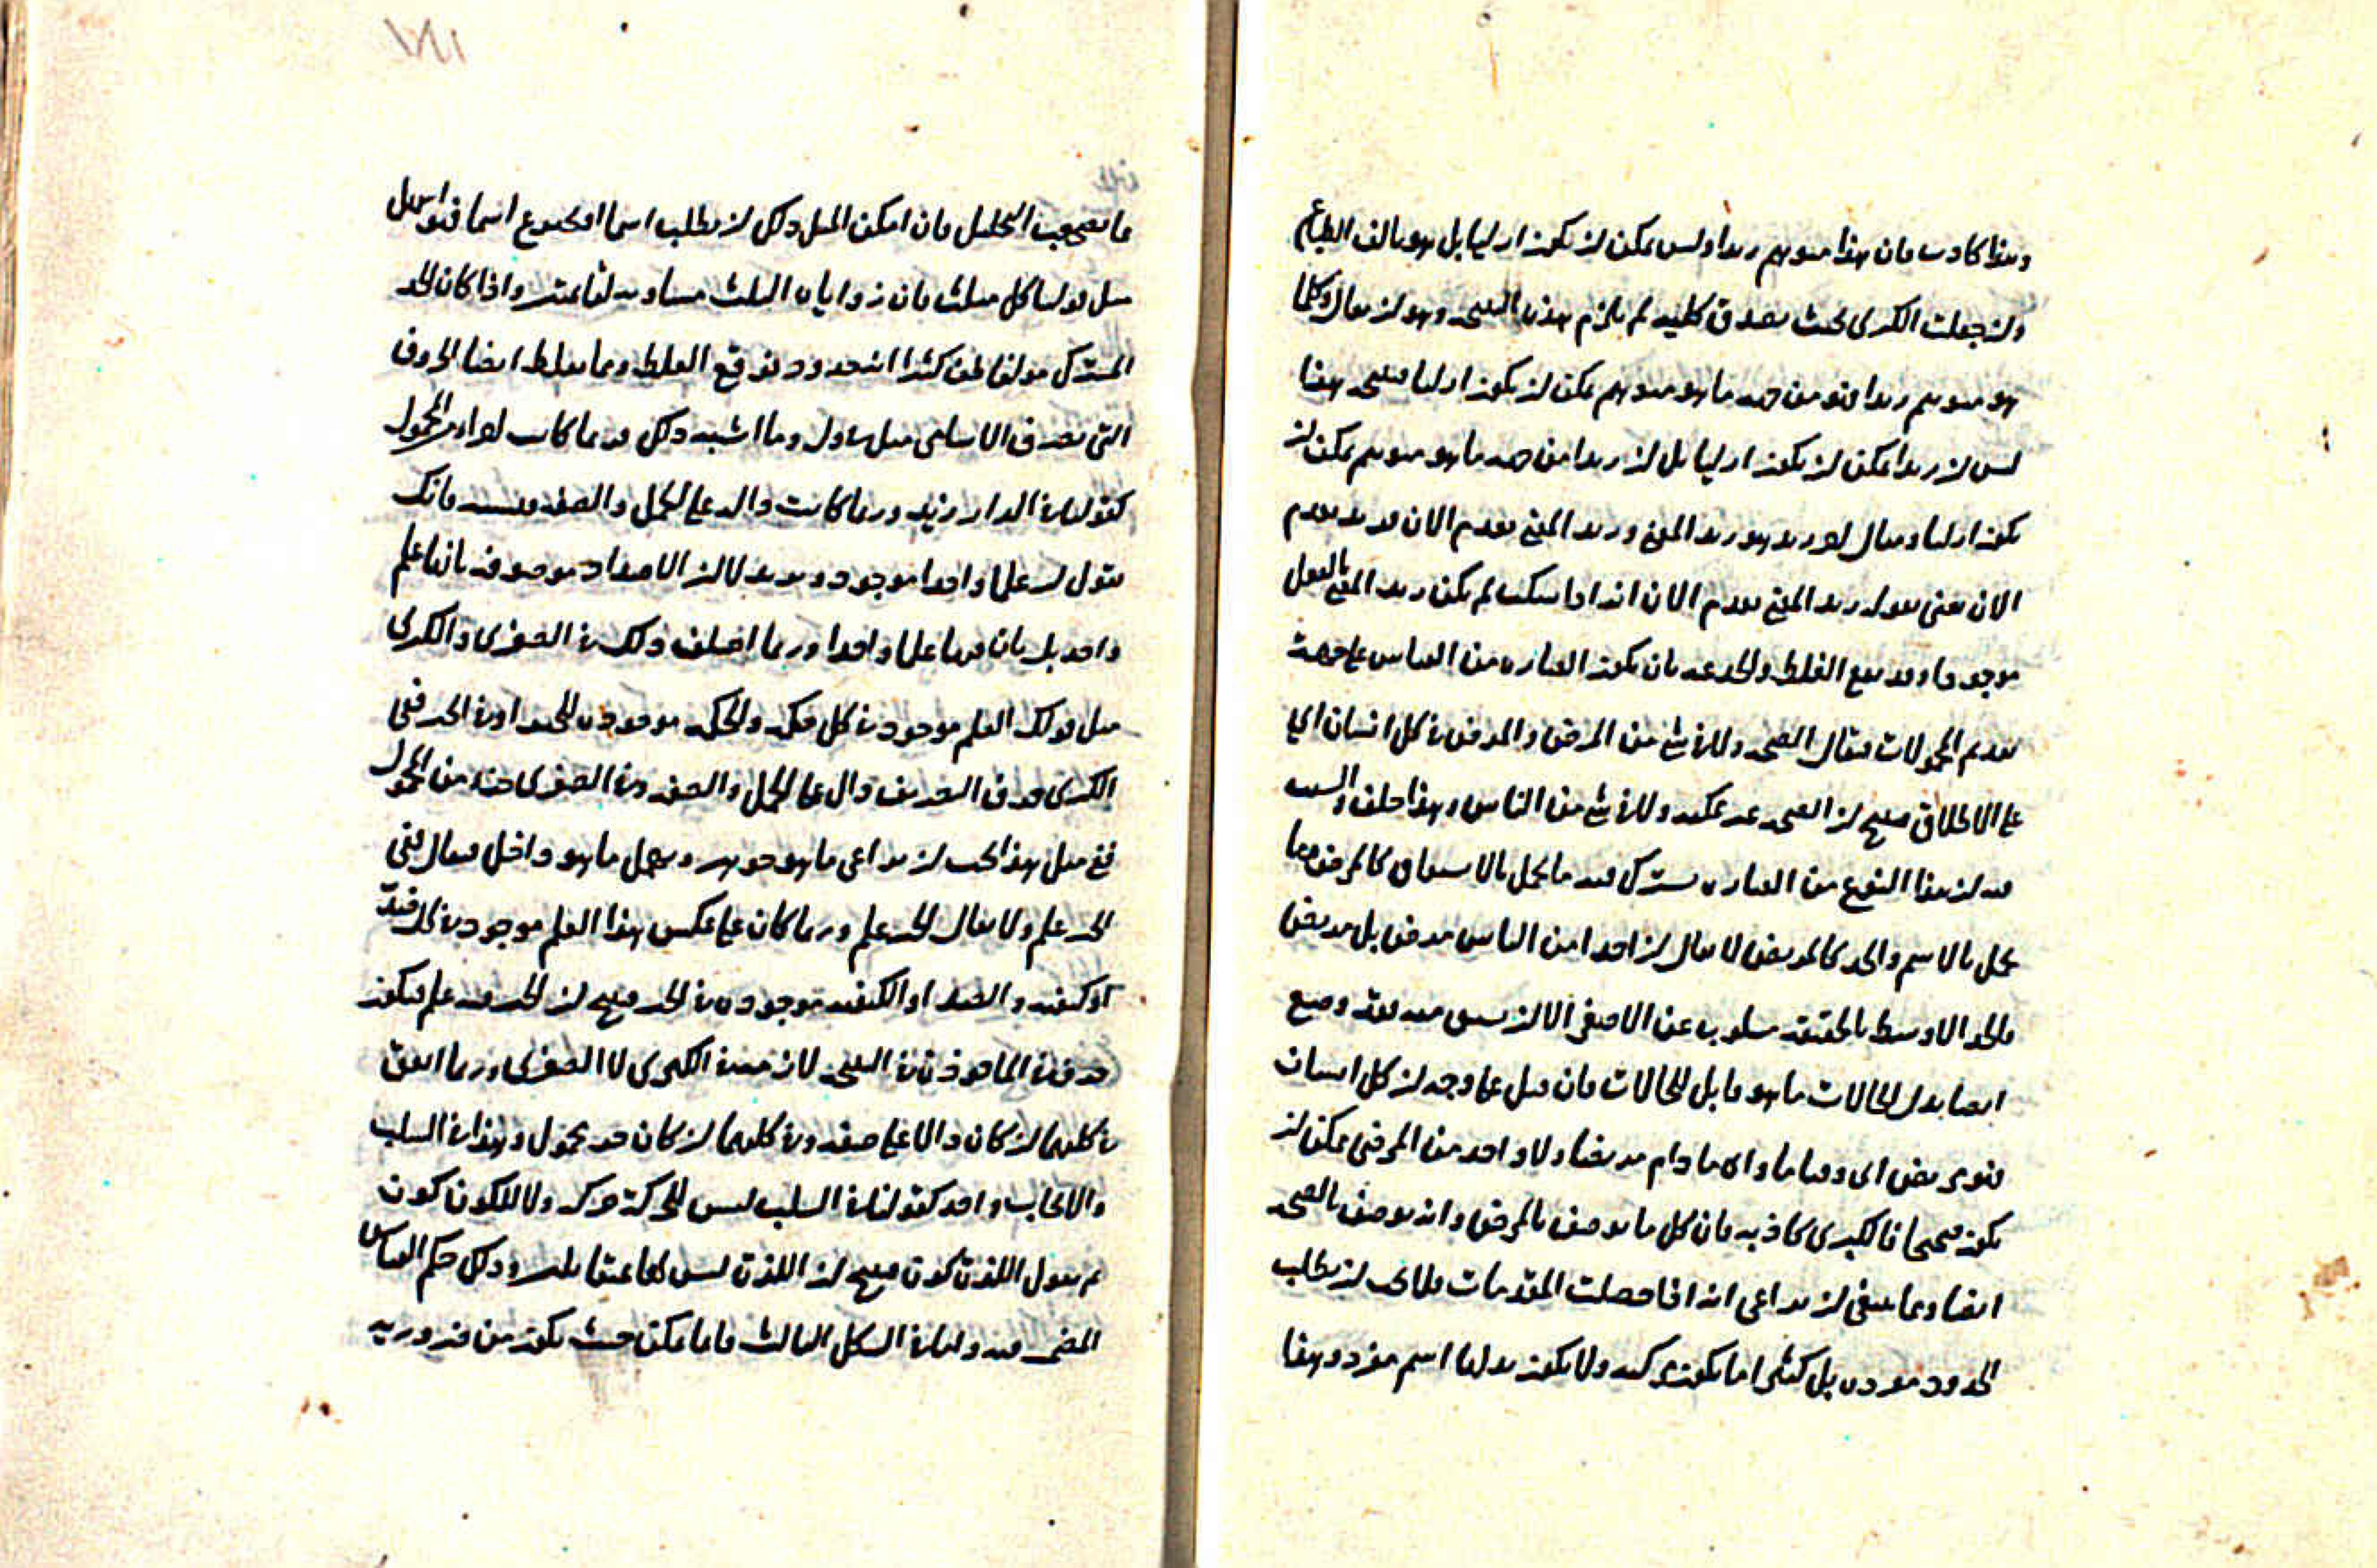 وهذا كاذب فان هذا متوهم زيدا وليس يمكن ان يكون ازليا بل هو تالف الطباع
وان جعلت الكبرى بحيث تصدق كلية لم يلزم هذه النتيجة وهو ان يقال وكلما
هو متوهم زيدا فهو من جهة ما هو متوهم يمكن ان يكون ازليا فينتج هذا
ليس ان زيدا يمكن ان يكون ازليا بل ان زيدا من جهة ما هو متوهم يمكن ان
يكون ازليا ومثال اخر زيد هو زيد المغني وزيد المغني يعدم الان فزيد يعدم
الان نعني بقوله زيد المغني يعدم الان انه اذا سكت لم يكن زيد المغني بالفعل
موجودا وقد يقع الغلط والخدعة بان يكون العبارة من القياس على جهة
تقديم المحمولات فيقال الصحة ولا في شئ من المرض والمرض في كل انسان اي
على الاطلاق فينتج ان الصحة غير ممكنة ولا في شئ من الناس وهذا خلف والسبب
فيه ان هذا النوع من العبارة يشترك فيه ما يحمل بالاشتقاق كالمرض وما
يحمل بالاسم والحد كالمريض لا يقال ان احدا من الناس مرض بل مريض
فالحد الاوسط بالحقيقة مسلوب عن الاصغر الا ان يسبق فيه ويضع
ايضا بدل الحالات ما هو قابل الحالات فان قيل على وجه ان كل انسان
فهو مريض اي وقتا ما واي ما دام مريضا ولا واحد من المرضى يمكن ان
يكون صحيحا فالكبرى كاذبة فان كل ما يوصف بالمرض فانه يوصف بالصحة
ايضا ومما ينبغي ان يراعى انه اذا حصلت المقدمات فلا يجب ان يطلب
الحدود مفردة بل كثيرا ما يكون مركبة ولا يكون بدلها اسم مفرد وهذا
مما يصعب التحليل فان امكن فليطلب اسما او يوضع اسما
مثل قولنا كل مثلث فان زواياه الثلث مساوية لقائمتين واذا كان الحد
المشترك مؤلفا ظن كثيرا انه حدود فتوقع الغلط ومما يغلط ايضا الحروف
التي تصرف الاسامي مثل وما اشبه ذلك فربما كانت اجزاء من المحمول
كقولنا في الدار زيد وربما كانت دالة على الحمل والصفة فانك
تقول ان علما واحدا موجود وتريد لا ان الاضداد موصوفة بانها علم
واحد بل بان فيها علما واحدا وربما اختلف ذلك في الصغرى والكبرى
مثل قولك العلم موجود في كل حكمة والحكمة موجودة للخير او في الخير ففي
الكبرى حرف التعريف دال على الحمل والصفة وفي الصغرى جزء من المحمول
ففي مثل هذا يجب ان يراعى ما هو جوهر ويهمل ما هو داخل فيقال في
الخير علم ولا يقال الخير علم وربما كان على عكس هذا العلم موجود في كل ضد
او كيفية والضد او الكيفية موجودة في الخير فينتج ان الخير فيه علم فيكون
حرف في الماخوذ في النتيجة لازمة في الكبرى لا الصغرى وربما اتفق
في كليهما ان كان دالا على صفة وفي كليهما ان كان جزء محمول وهذا في السلب
والايجاب واحد كقولنا في السلب ليس للحركة حركة ولا للكون كون
ثم نقول اللذة كون فينتج ان اللذة ليس وكذلك حكم القياس
فيه واما في الشكل الثالث فاما يمكن حيث يكون من ضرورية